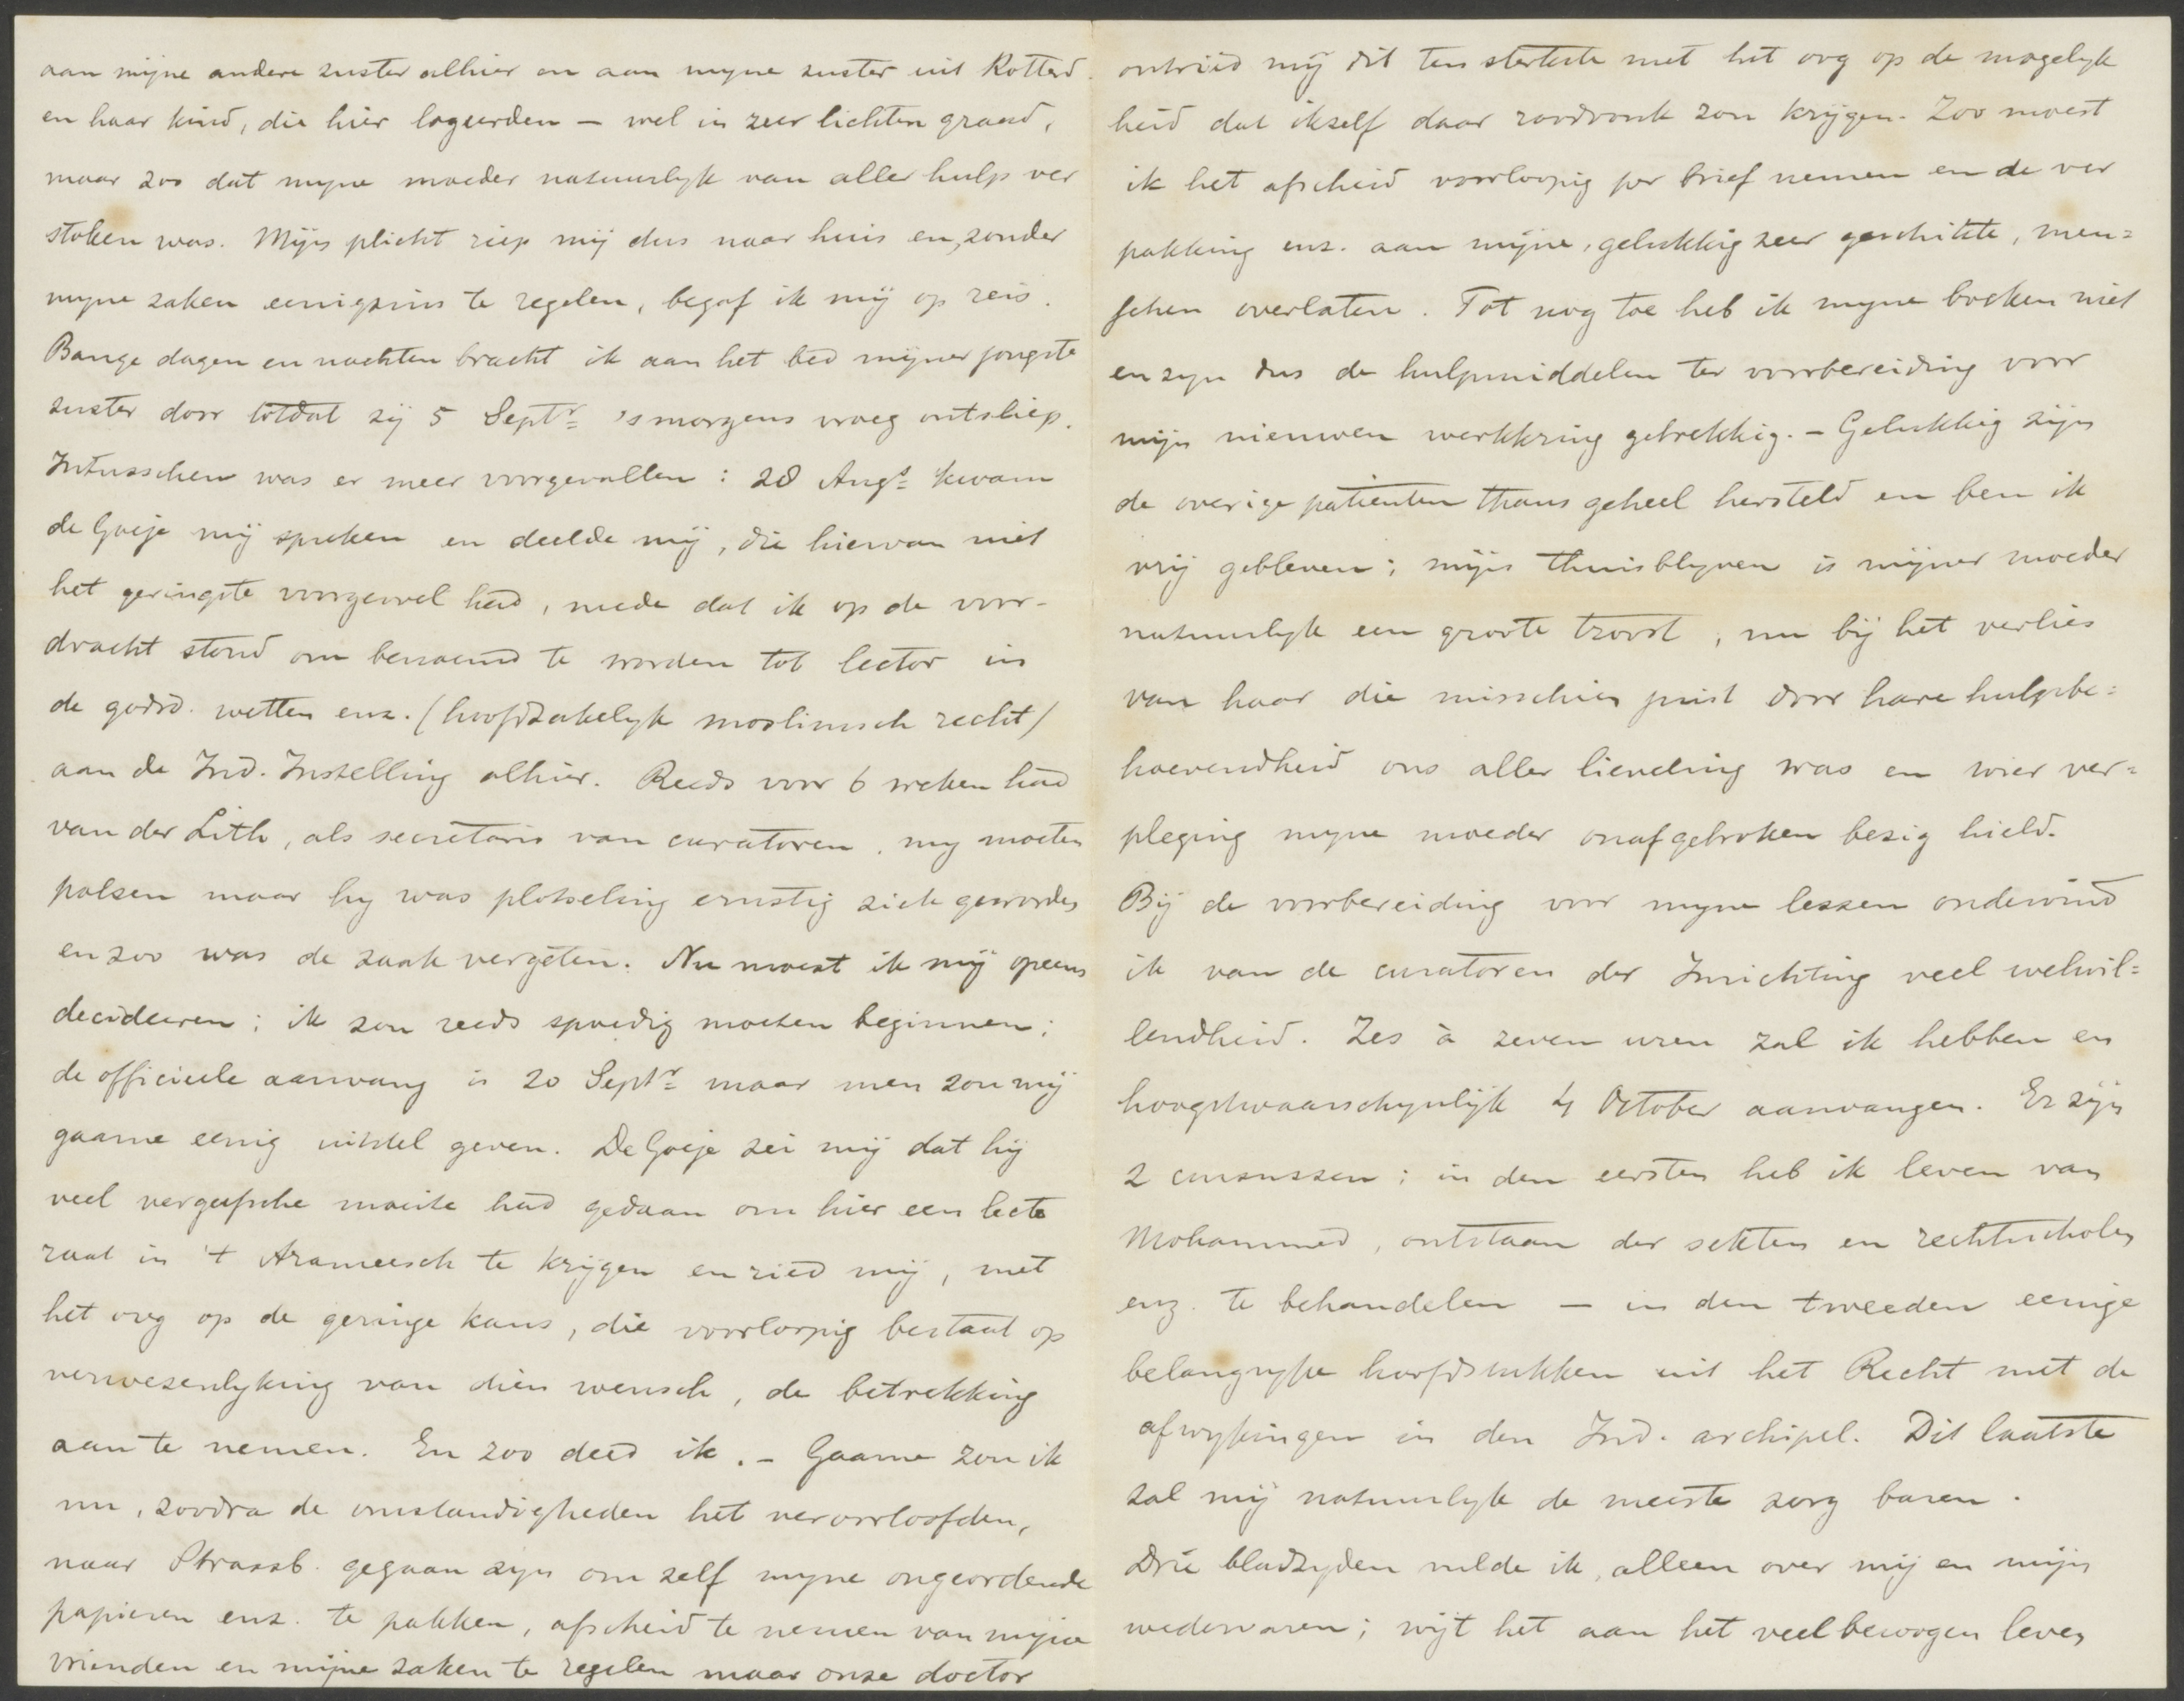 aan mijne andere zuster alhier en aan myne zuster uit Rotterd.
en haar kind, die hier logeerden – wel in zeer lichten graad,
maar zoo dat myne moeder natuurlyk van alle hulp ver
stoken was. Mijn plicht riep mij dus naar huis en, zonder
myne zaken eenigszins te regelen, begaf ik mij op reis.
Bange dagen en nachten bracht ik aan het bed mijner jongste
zuster door totdat zij 5 Septr 's morgens vroeg ontsliep.
Intusschen was er meer voorgevallen : 28 Augs kwam
de Goeje mij spreken en deelde mij, die hiervan niet
het geringste voorgevoel had, mede dat ik op de voor-
dracht stond om benoemd te worden tot lector in
de godsd. wetten enz. (hoofdzakelyk moslimsch recht)
aan de Ind. Instelling alhier. Reeds voor 6 weken had
van der Lith, als secretaris van curatoren, my moeten
polsen maar hy was plotseling ernstig ziek geworden
en zoo was de zaak vergeten. Nu moest ik mij opeens
decideeren ; ik zou reeds spoedig moeten beginnen ;
de officieele aanvang is 20 Septr maar men zou mij
gaarne eenig uitstel geven. De Goeje zei mij dat hij
veel vergeefsche moeite had gedaan om hier een lecto
raat in 't Arameesch te krijgen en ried mij, met
het oog op de geringe kans, die voorloopig bestaat op
verwezenlyking van dien wensch, de betrekking
aan te nemen. En zoo deed ik. – Gaarne zou ik
nu, zoodra de omstandigheden het veroorloofden,
naar Strassb. gegaan zyn om zelf myne ongeordende
papieren enz. te pakken, afscheid te nemen van mijne
vrienden en mijne zaken te regelen maar onze doctor
ontried mij dit ten sterkste met het oog op de mogelyk
heid dat ikzelf daar roodvonk zou krijgen. Zoo moest
ik het afscheid voorloopig per brief nemen en de ver
pakking enz. aan mijne, gelukkig zeer geschikte, men=
schen overlaten. Tot nog toe heb ik myne boeken niet
en zyn dus de hulpmiddelen ter voorbereiding voor
mijn nieuwen werkkring gebrekkig. – Gelukkig zijn
de overige patienten thans geheel hersteld en ben ik
vrij gebleven ; mijn thuisblyven is mijner moeder
natuurlyk een groote troost, nu bij het verlies
van haar die misschien juist door hare hulpbe=
hoevendheid ons aller lieveling was en wier ver=
pleging myne moeder onafgebroken bezig hield.
Bij de voorbereiding voor myne lessen ondervind
ik van de curatoren der Inrichting veel welwil=
lendheid. Zes à zeven uren zal ik hebben en
hoogstwaarschynlijk 4 October aanvangen. Er zijn
2 cursussen ; in den eersten heb ik leven van
Mohammed, ontstaan der sekten en rechtsscholen
enz. te behandelen – in den tweeden eenige
belangrijke hoofdstukken uit het Recht met de
afwijkingen in den Ind. archipel. Dit laatste
zal mij natuurlyk de meeste zorg baren.
Drie bladzyden vulde ik, alleen over mij en mijn
wedervaren ; wijt het aan het veelbewogen leven